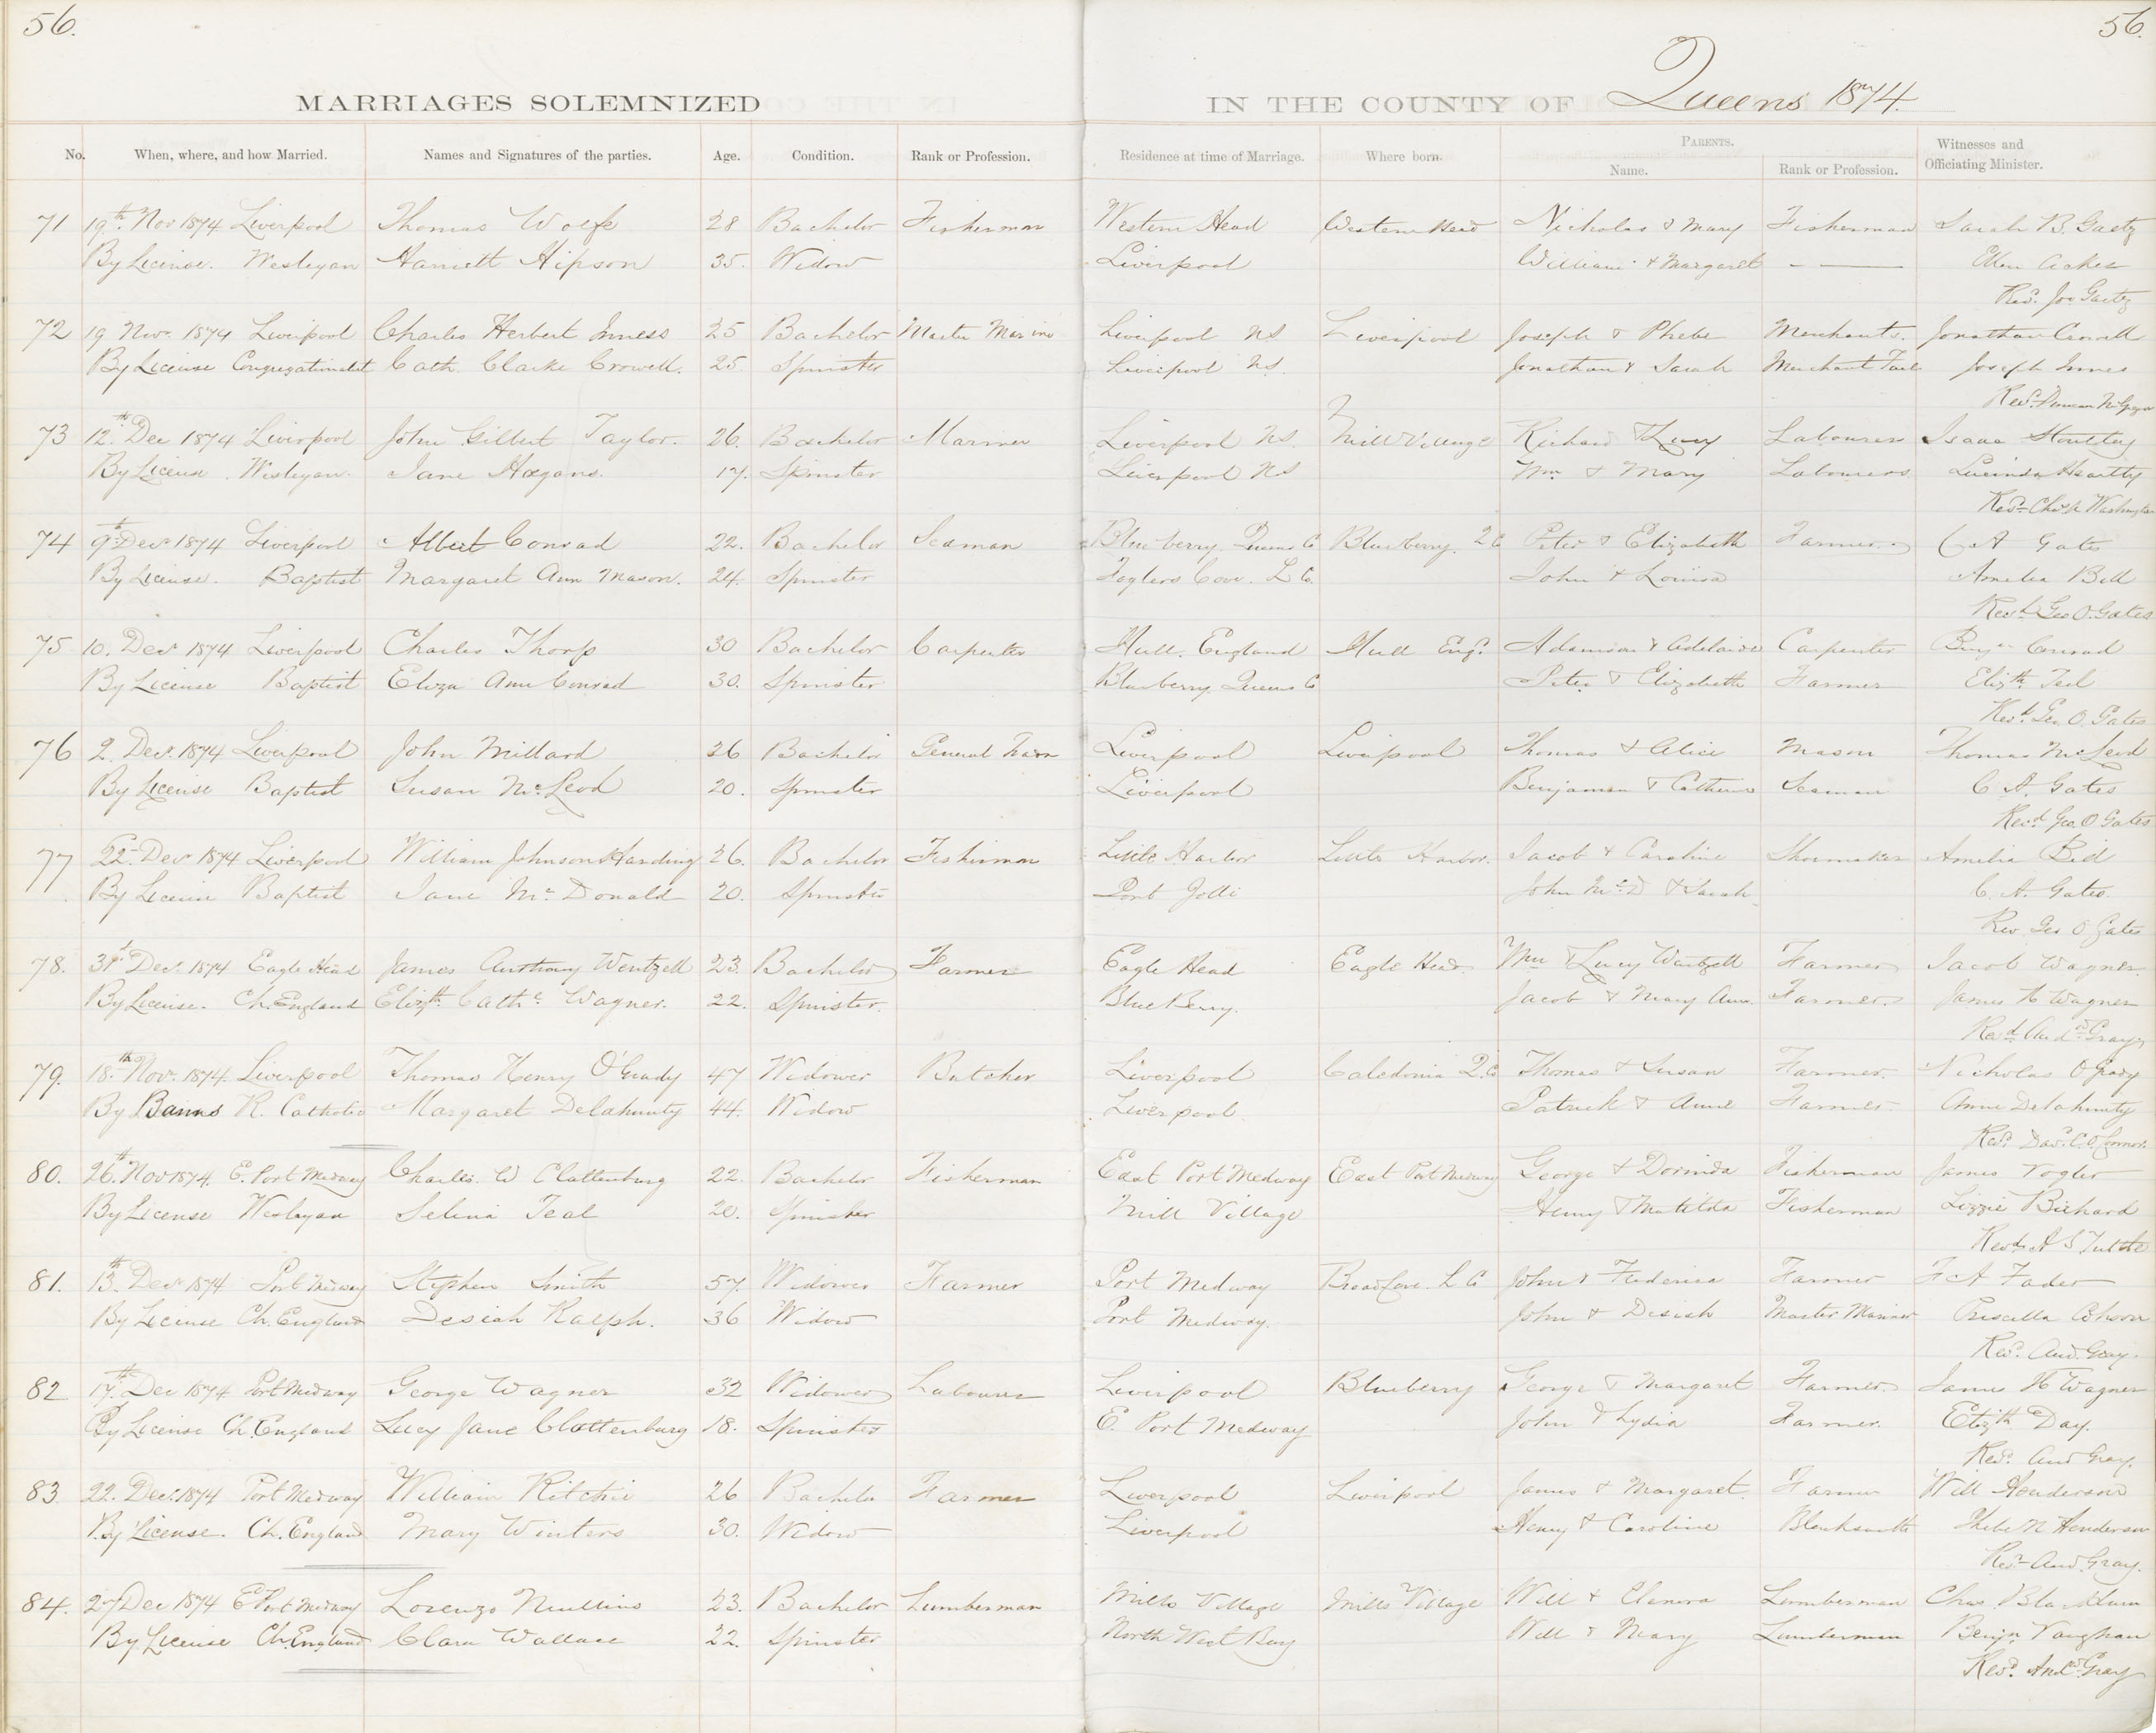 56. 56.
MARRIAGES SOLEMNIZED IN THE COUNTY OF Queens 1874.
No. When, where, and how Married. Names and Signatures of the parties. Age. Condition. Rank or Profession. Residence at time of Marriage. Where born. PARENTS. Name. Rank or Profession. Witnesses and Officiating Minister.
71 19th Nov 1874 Liverpool Thomas Wolfe 28 Bachelor Fisherman Western Head Western Head Nicholas & Mary Fisherman Sarah B. Gaetz
By License. Wesleyan Harriett Hipson 35. Widow Liverpool William & Margaret Ellen
Revd. Jos Gaetz
72 19 Novr 1874 Liverpool Charles Herbert Inness 25 Bachelor Master Mariner Liverpool NS Liverpool Joseph & Phebe Merchants. Jonathan Crowell
By License Congregationalist Cath. Clarke Crowell. 25. Spinster Liverpool NS. Jonathan & Sarah Merchant Joseph Innes
Revd. Duncan McGregor
73 12th Dec 1874 Liverpool John Gilbert Taylor. 26. Bachelor Mariner Liverpool NS. Mill Village Richard & Lucy Labourer Isaac
By License Wesleyan. Jane Hagans. 17. Spinster Liverpool NS Wm & Mary Labourers Lucinda
Revd Chas
74 9th Decr 1874 Liverpool Albert Conrad 22. Bachelor Seaman Blueberry, Queens Co Blueberry. Q C Peter & Elizabeth Farmer. C A Gates
By License. Baptist Margaret Ann Mason. 24. Spinster Foglers Cove. L Co. John & Louisa Amelia Bill
Revd. Geo O. Gates
75 10. Decr 1874 Liverpool Charles Thorp 30 Bachelor Carpenter Hull. England Hull Eng. Adamson & Adelaide Carpenter Conrad
By License Baptist Eliza Ann Conrad 30. Spinster Blueberry, Queens C Peter & Elizabeth Farmer Elizth. Teel
Revd. Geo O. Gates
76 2. Decr. 1874 Liverpool John Millard 26 Bachelor General Liverpool Liverpool Thomas & Alice Mason Thomas McLeod
By License Baptist Susan McLeod 20. Spinster Liverpool Benjamin & Catherine Seaman C A. Gates
Revd Geo O Gates
77 22. Decr 1874 Liverpool William Johnson Harding 26. Bachelor Fisherman Little Harbor Little Harbor. Jacob & Caroline Shoemaker Amelia Bill
By License Baptist Jane McDonald 20. Spinster Port Jolli John McD & Sarah C. A. Gates.
Rev Geo O Gates
78. 31st Decr. 1874 Eagle Head James Anthony Wentzell 23. Bachelor Farmer Eagle Head Eagle Head. Wm & Lucy Wentzell Farmer Jacob Wagner.
By License. Ch. England Elizth. Cathe. Wagner. 22. Spinster. Blue Berry. Jacob & Mary Ann. Farmer. James H Wagner
Revd. Andw. Gray
79. 18th Novr. 1874. Liverpool Thomas Henry O'Grady 47 Widower Butcher Liverpool Caledonia Q. C Thomas & Susan Farmer. Nicholas O Grady
By Banns R. Catholic Margaret Delahunty 44. Widow Liverpool. Patrick & Anne Farmer. Anne Delahunty
Revd. Davd. C. O'Connor.
80. 26th Nov 1874. E. Port Medway Charles. W Clattenburg 22. Bachelor Fisherman East Port Medway East Port Medway George & Dorinda Fisherman James Vogler
By License Wesleyan Selina Teal 20. Spinster Mill Village Henry & Matilda Fisherman Lizzie
Revd. A S Tuttle
81. 13th Decr 1874 Port Medway Stephen Smith 57. Widower Farmer Port Medway Broad Cove. L C John & Frederica Farmer F A Fader
By License Ch. England Desiah Ralph. 36 Widow Port Medway. John & Desiah Master Mariner Priscilla Cohoon
Revd. Andw. Gray.
82 17th Dec 1874 Port Medway George Wagner 32 Widower Labourer Liverpool Blueberry George & Margaret Farmer. James H Wagner
By License Ch. England Lucy Jane Clattenburg 18. Spinster E. Port Medway John & Lydia Farmer. Elizth Day.
Revd. Andw Gray.
83. 22. Decr. 1874 Port Medway William Ritchie 26 Bachelor Farmer Liverpool Liverpool James & Margaret. Farmer Will Henderson
By License. Ch. England Mary Winters 30. Widow Liverpool Henry & Caroline Blacksmith Phebe N Henderson
Revd. Andw. Gray.
84. 27 Dec 1874 E Port Medway Lorenzo Mullins 23. Bachelor Lumberman Mills Village Mills Village Will & Elenora Lumberman Chas
By License Ch. England Clara Wallace 22. Spinster North West Bay Will & Mary Lumberman Benjn Vaughan
Revd. Andw. Gray